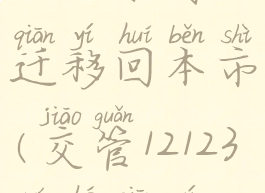 qiān yí huí běn shì
迁移回本市
jiāo guǎn
(交管12123